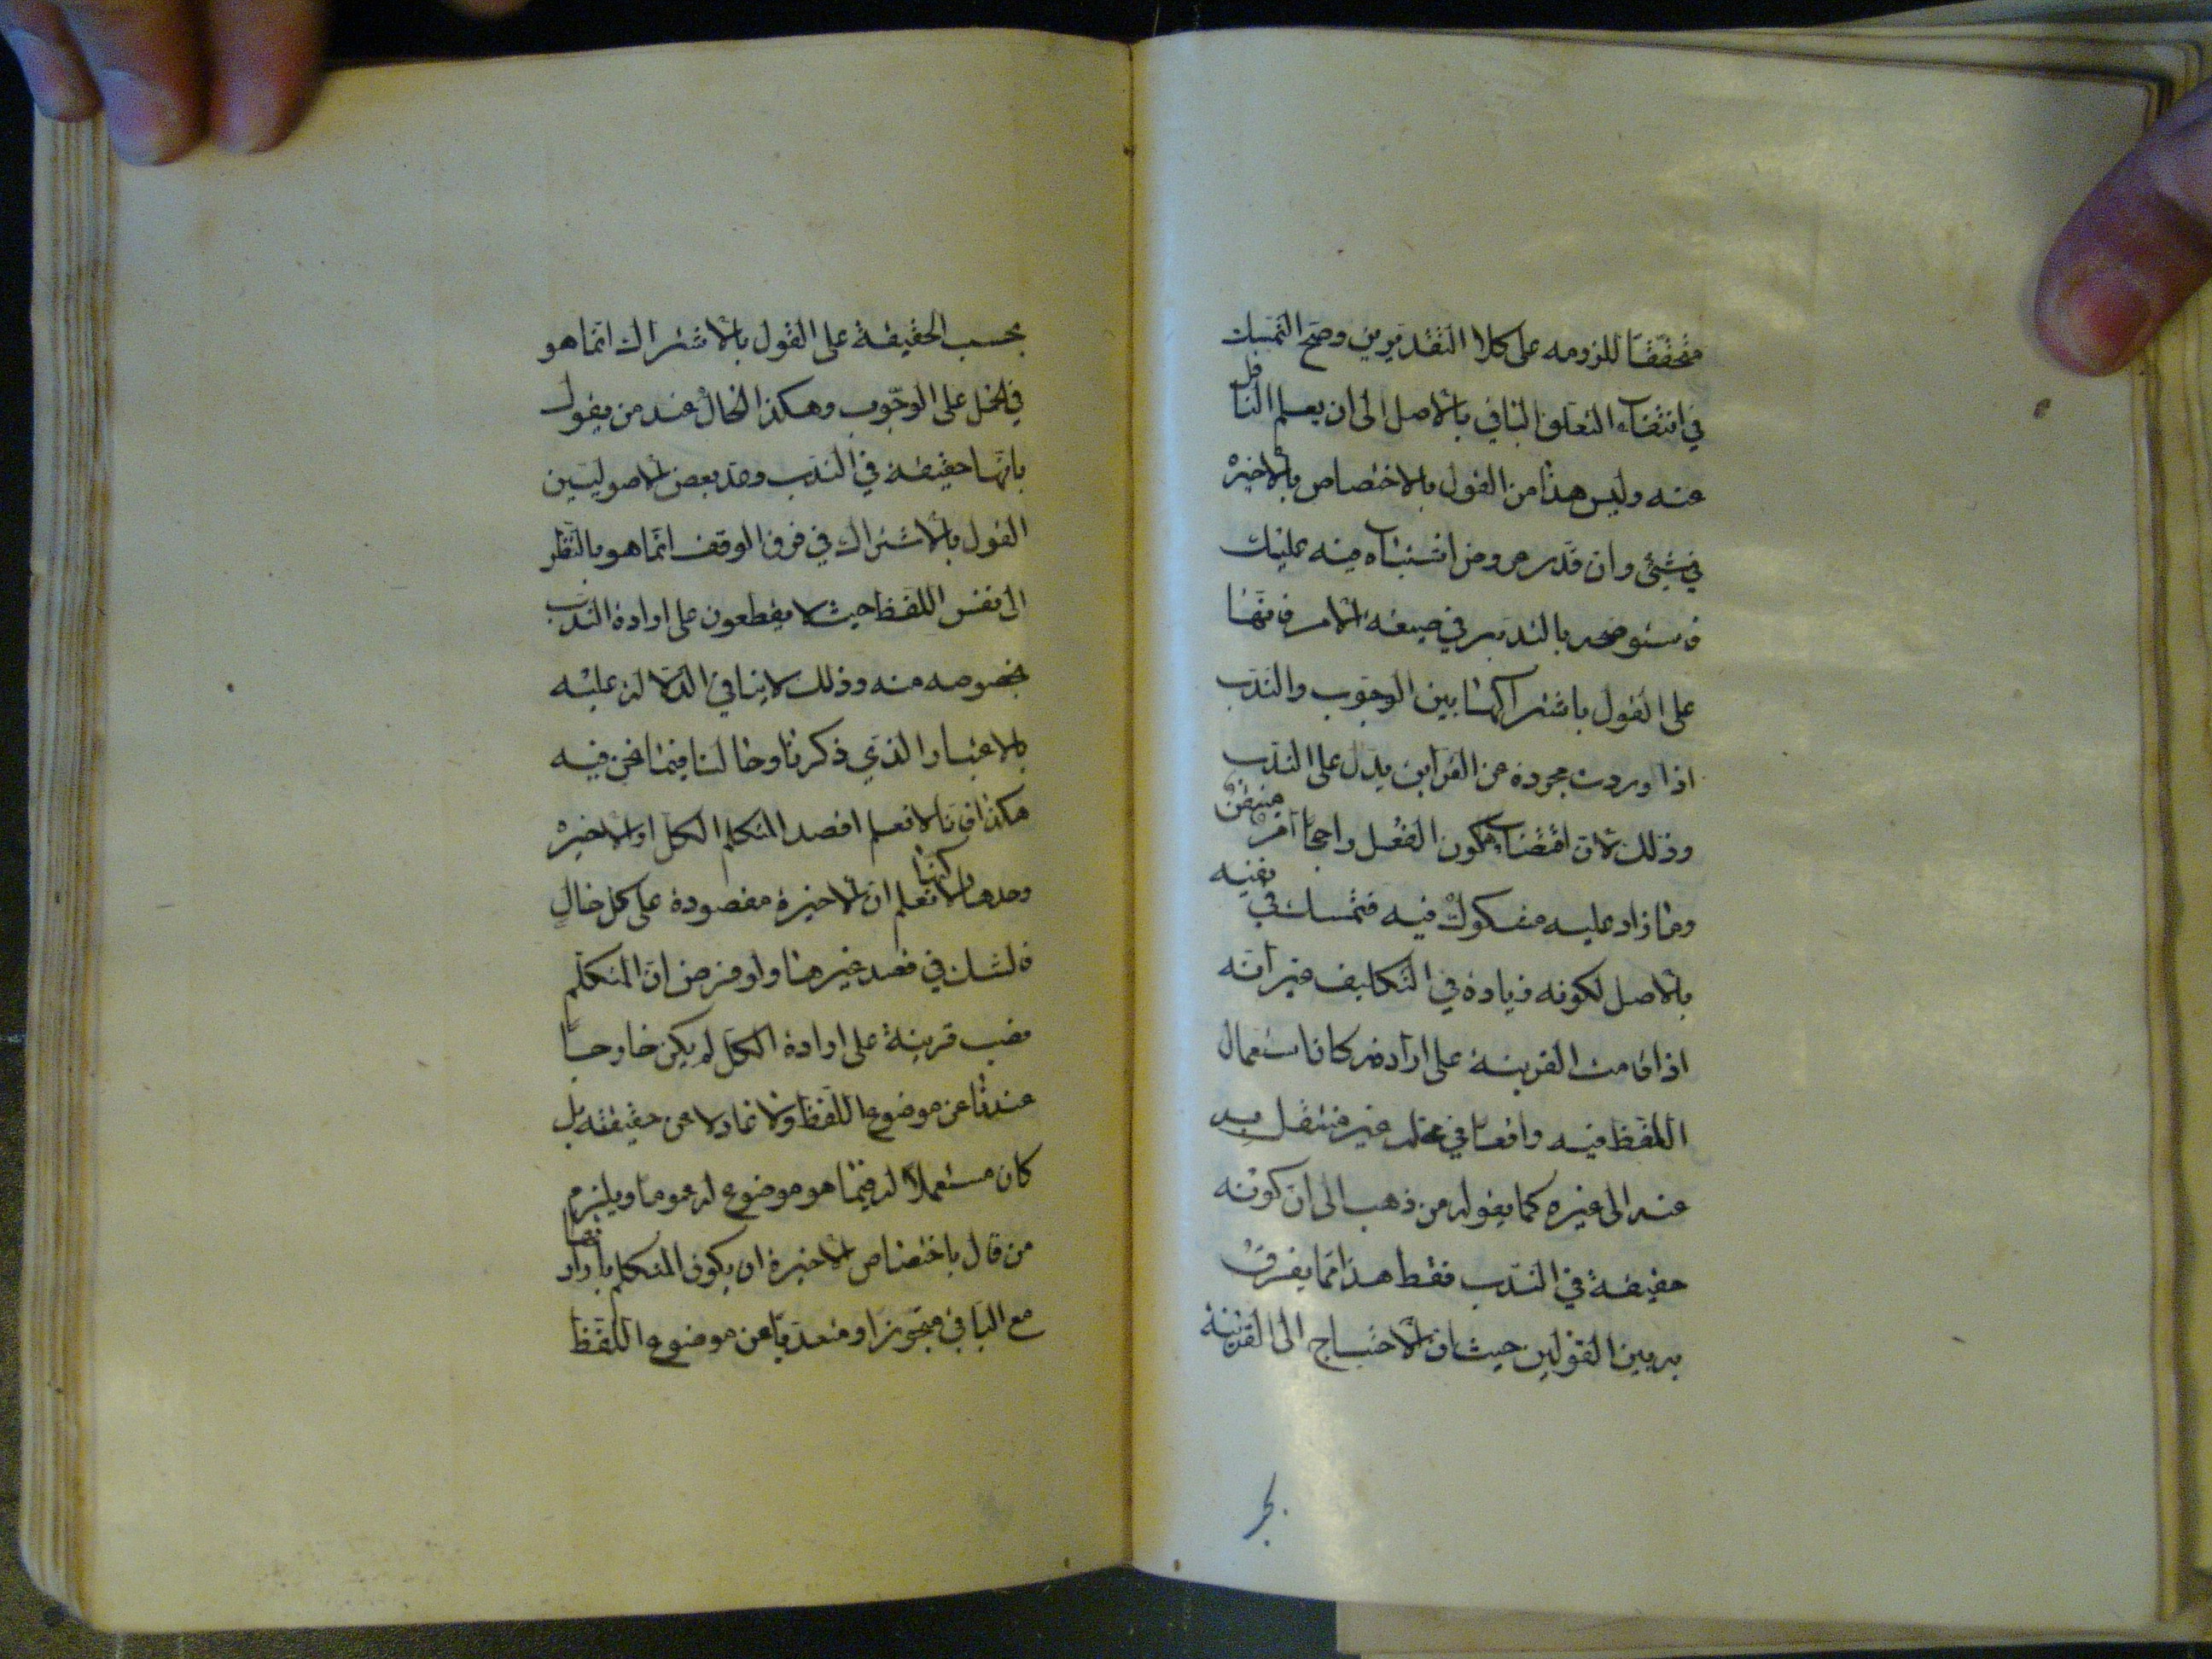 متحققا للزومه على كلا التقديرين وصح التمسك
في انتفاء التعلق الباقي بالاصل الى ان يعلم الناقل
عنه وليس هذا من القول بالاختصاص بالاخيرة
في شيئ وان قدر عروض اشتباه فيه عليك
فاستوضحه بالتدبر في صيغة الامر فانها
على القول باشتراكها بين الوجوب والندب
اذا وردت مجردة عن القرآين يدل على الندب
وذلك لان اقتضاء كون الفعل راجحا امر متيقن
وما زاد عليه مشكوك فيه فتمسك في نفيه
بالاصل لكونه زيادة في التكليف غير انه
اذا قامت القرينة على ارادته كان استعمال
اللفظ فيه واقعا في محله غير منتقل به
عنه الى غيره كما يقوله من ذهب الى ان كونه
حقيقة في الندب فقط هذا مما يفرق
به بين القولين حيث ان الاحتياج الى القرينة
بحسب الحقيقة على القول بالاشتراك انما هو
في الحمل على الوجوب وهكذا الحال عند من يقول
بانها حقيقة في الندب وعد بعض الاصوليين
القول بالاشتراك في فرق الوقف انما هو بالنظر
الى نفس اللفظ حيث لا يقطعون على ارادة الندب
بخصوصه منه وذلك لا ينافي الدلالة عليه
بالاعتبار الذي ذكرنا وحالنا فيما نحن فيه
هكذا فانا لا نعلم اقصد المتكلم الكل او الاخيرة
وحدها لكنا نعلم ان الاخيرة مقصودة على كل حال
فالشك في قصد غيرها ولو فرض ان المتكلم
نصب قرينة على ارادة الكل لم يكن خارجا
عندنا عن موضوع اللفظ ولا عادلا عن حقيقته بل
كان مستعملا له فيما هو موضوع له عموما ويلزم
من قال باختصاص الاخيرة ان يكون المتكلم بارادتها
مع الباقي متجوزا ومتعديا عن موضوع اللفظ